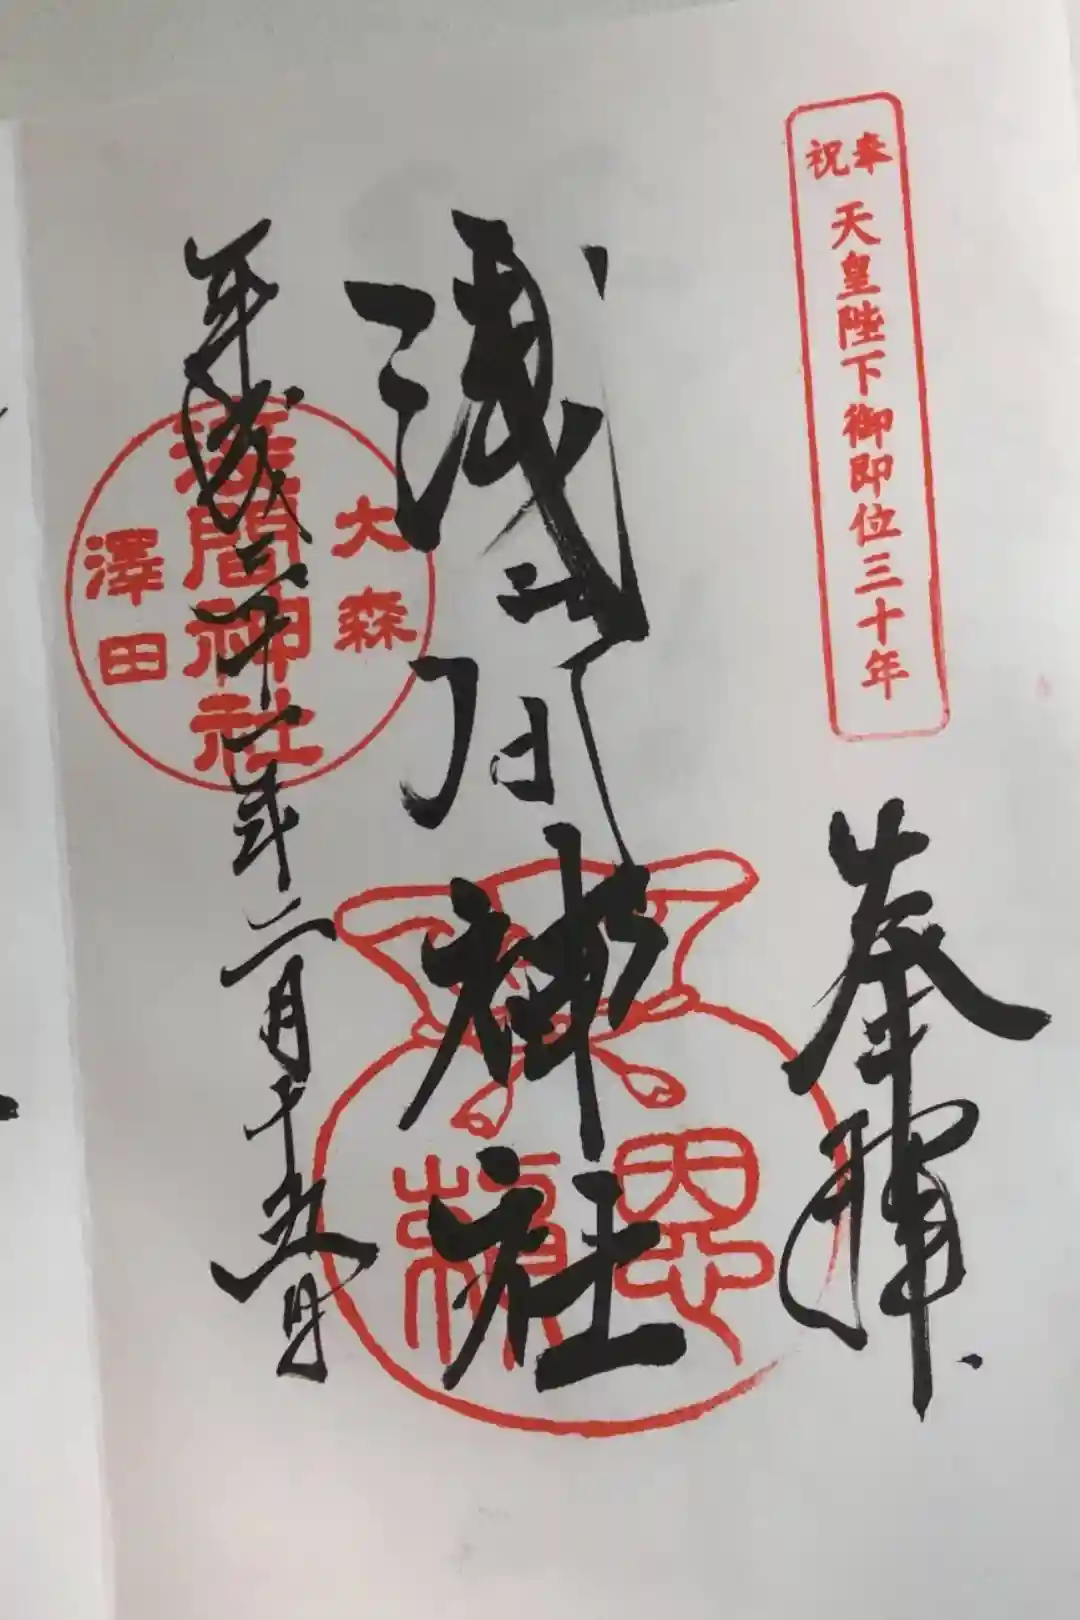 奉祝
天皇陛下御即位三十年
奉拝
浅間神社
大森
浅間神社
澤田
平成三十一年二月十
日
恩